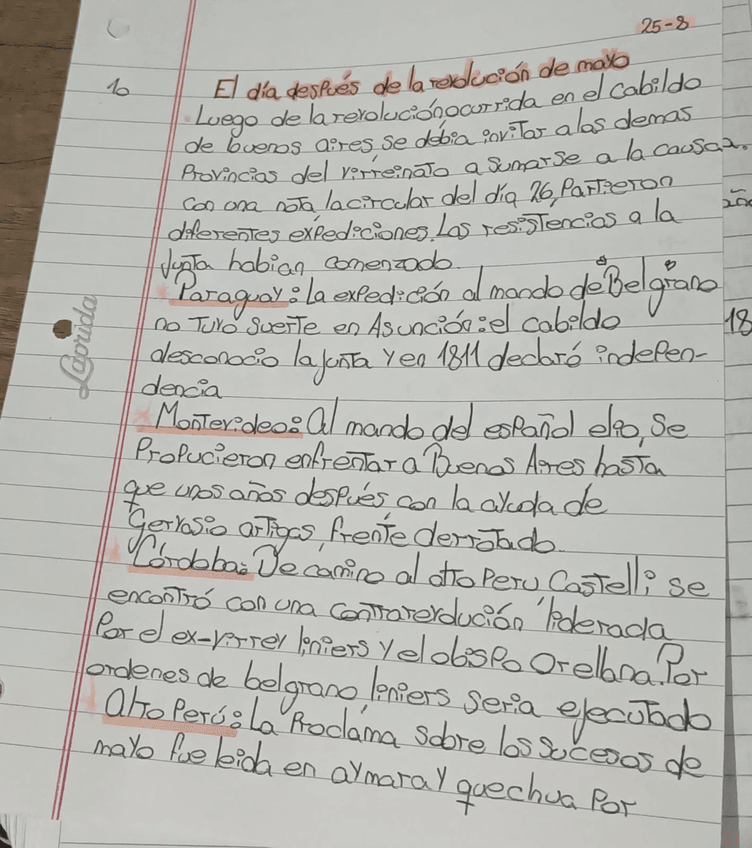 25-8
1o
El día después de la revolución de mayo
Luego de la revolución ocurrida en el cabildo
de buenos aires se debia invitar a las demas
Provincias del virreinato a sumarse a la causa.
Con una nota, la circular del día 26, Partieron
diferentes expediciones. Las resistencias a la
Junta habian comenzado.
Paraguay: la expedición al mando de Belgrano
no Tuvo suerte en Asunción: el cabildo
desconocio la junta y en 1811 declaró indepen-
dencia
Montevideo: Al mando del español elio, se
Propucieron enfrentar a Buenos Aires hasta
que unos años después con la ayuda de
Gervasio artigas, frente derrotado.
Córdoba: De camino al alto Peru, Castelli se
encontró con una contrarevolución liderada
Por el ex-virrey liniers y el obispo Orellana. Por
ordenes de belgrano, leniers seria ejecutado
alto Perú: La Proclama sobre los sucesos de
mayo fue leida en aymara y quechua Por
Laprida
18